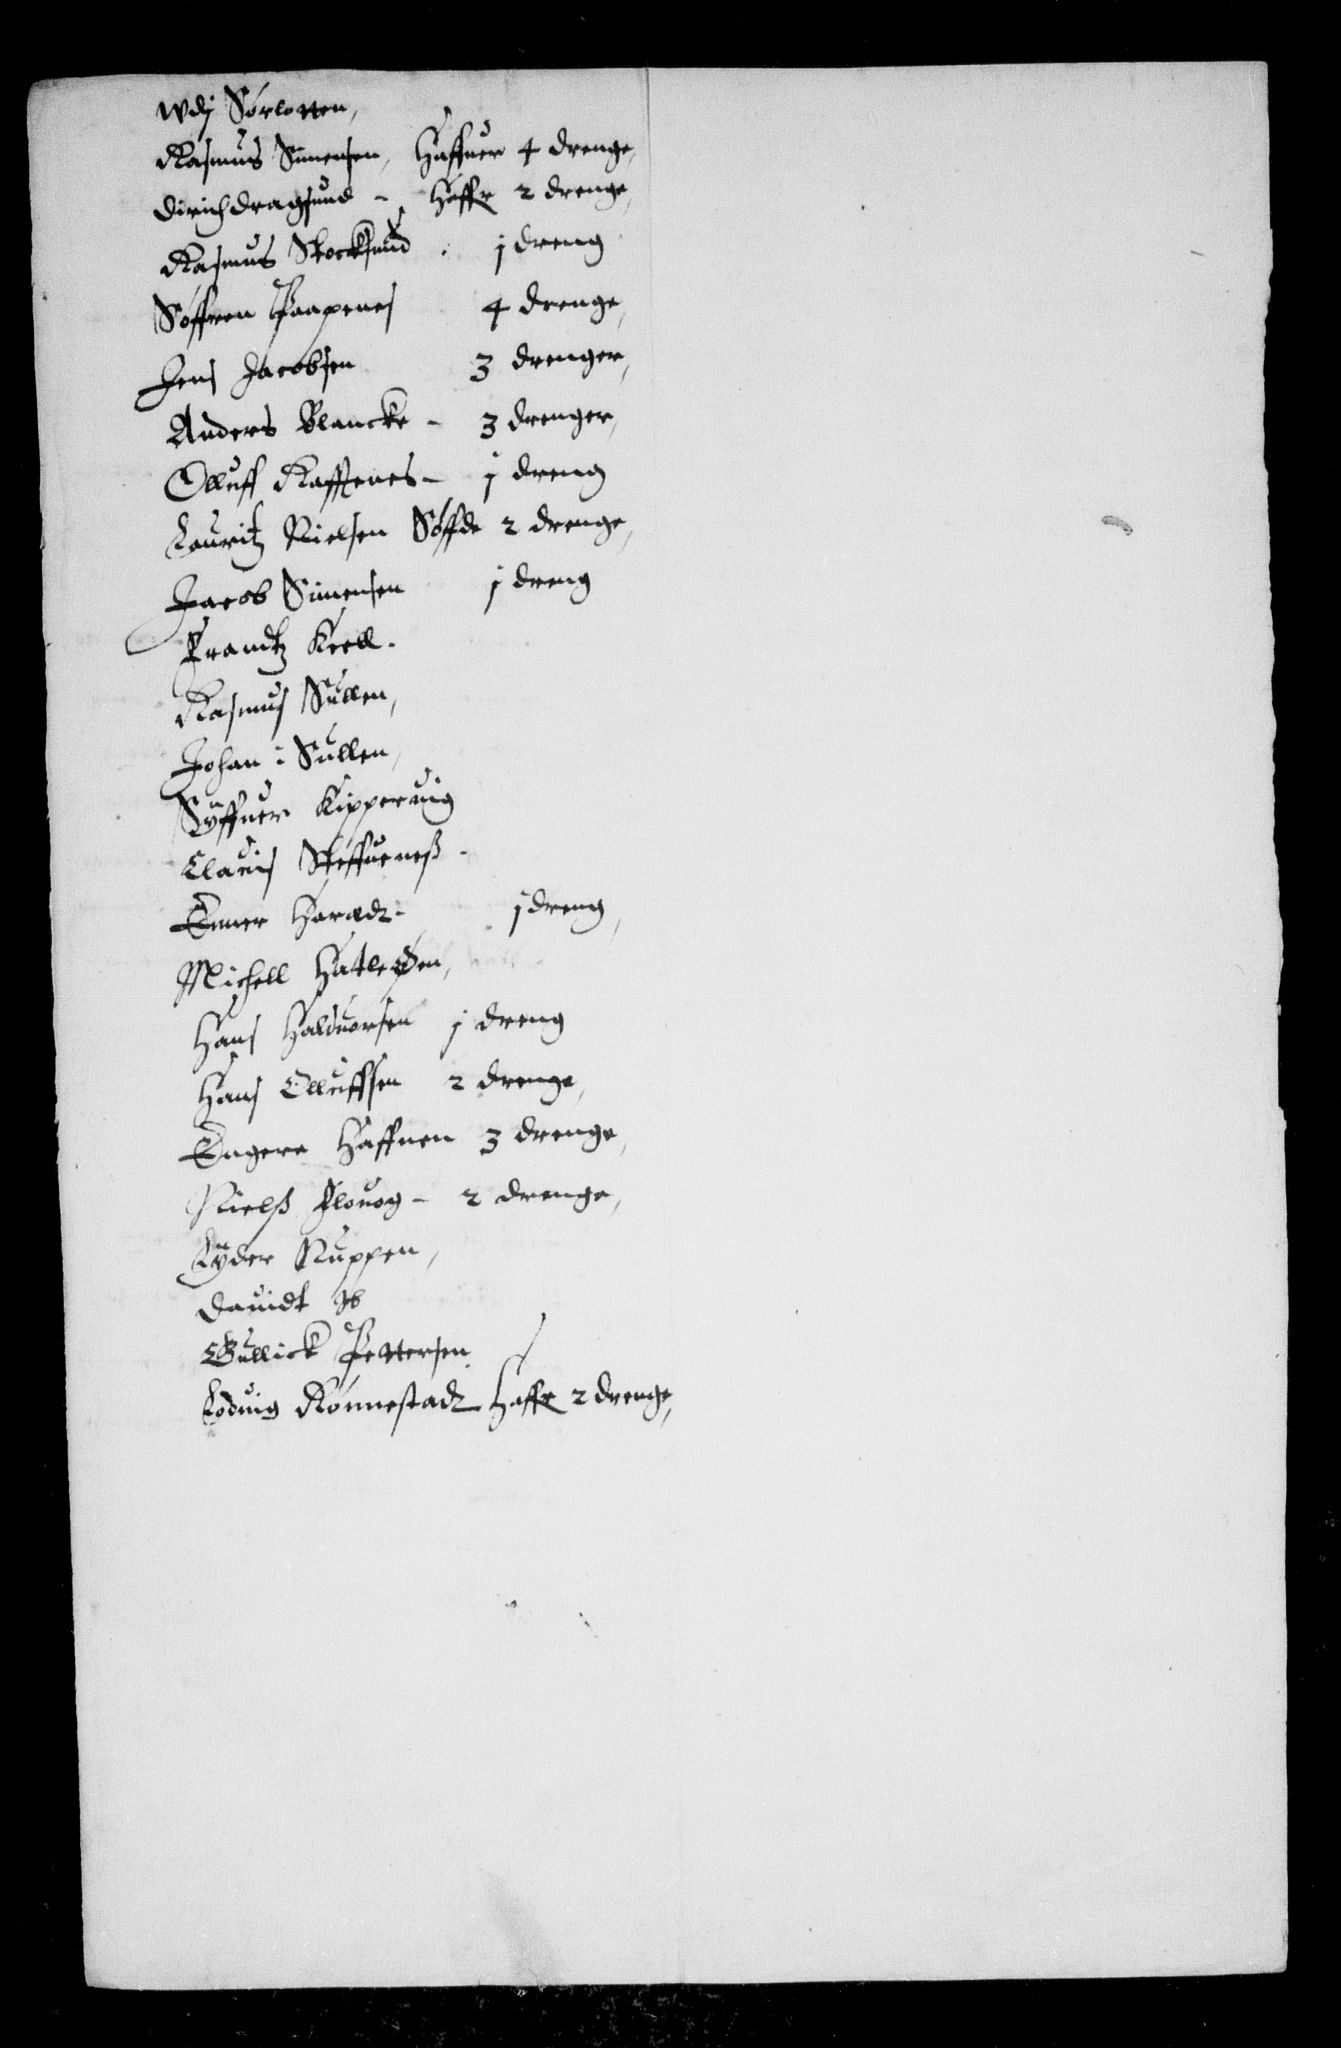 Wdj Sørlotten,
Rasmus Simensen, Haffuer 4 drenge,
Dirich dragsund - Haffr 2 drenge,
Rasmus Stocksund . j dreng
Søffren Paapenes 4 drenge,
Jens Jacobsen 3 drenger,
Anders Blancke - 3 drenger,
Olluff Raffenes - j dreng
Lauritz Nielsen Søffde 2 drenge,
Jacob Simensen j dreng
Frandtz Krell.
Rasmus Sullen,
Johan i Sullen,
Syffuer Kipperuig
Clauis Steffueneß -
Enner Haradz - j dreng,
Michell Hatleøen,
Hans Halduorsen j dreng
Hans Olluffsen 2 drenge,
Engere Haffnen 3 drenge,
Nielß Flouog - 2 drenge,
Lyder Nuppen,
Dauidt Ib
Gullick Pettersen
Loduig Rønnestadz Haffr 2 drenge,